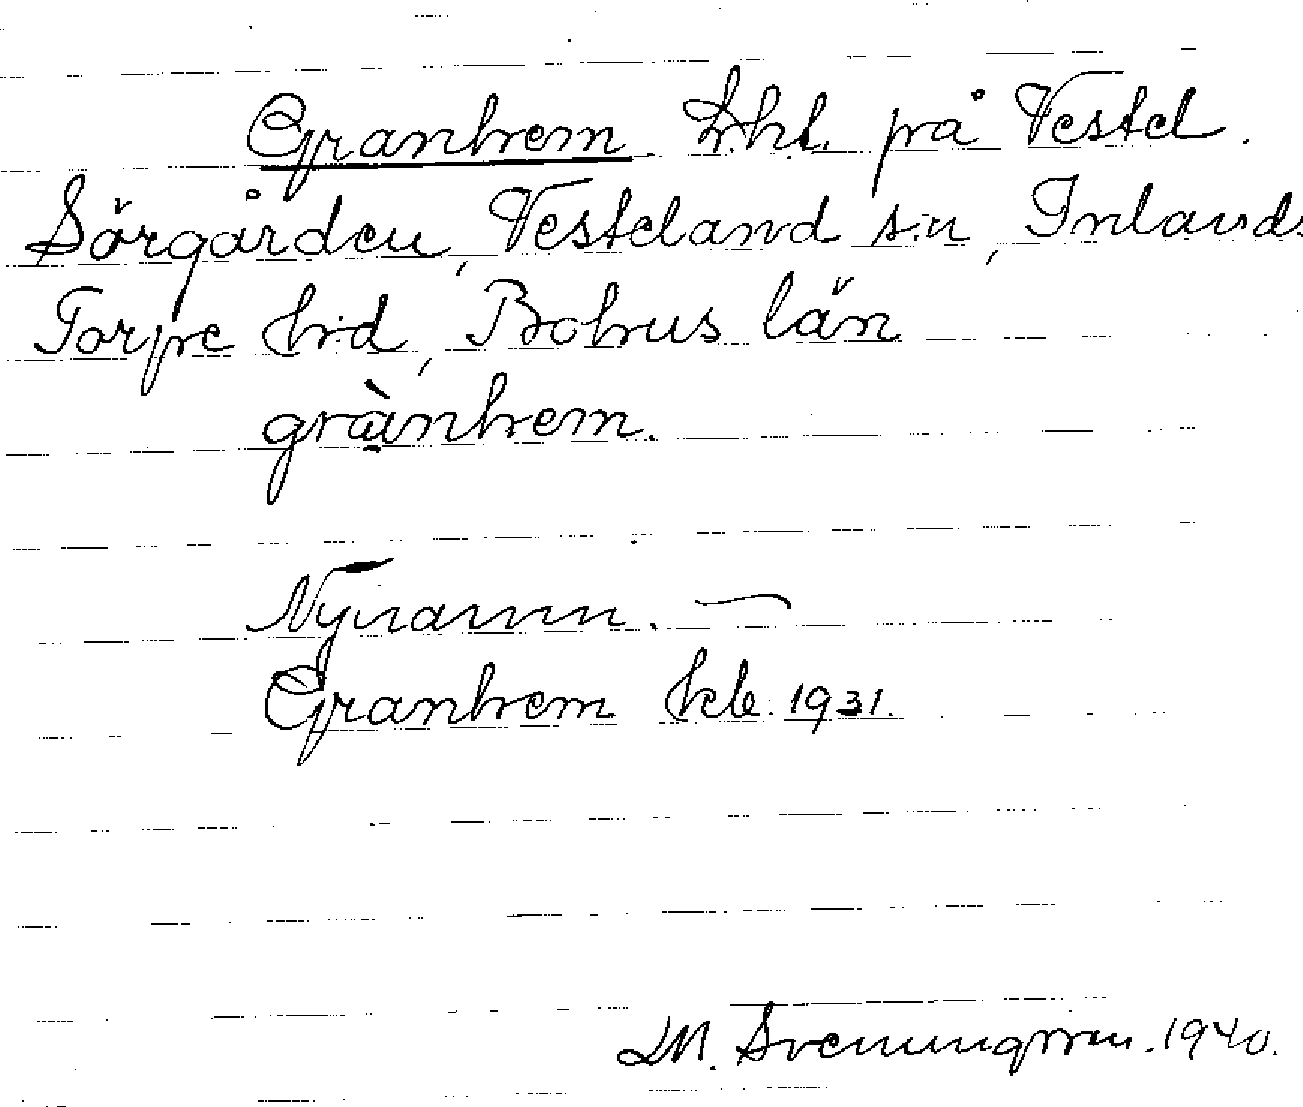 Granhem. Lht. på Vestel.
Sörgården, Vesteland s:n, Inlands
Torpe h:d, Bohus län
grànhem.
Nynamn. —
Granhem hcb. 1931.
M. Svenungsson. 1940.